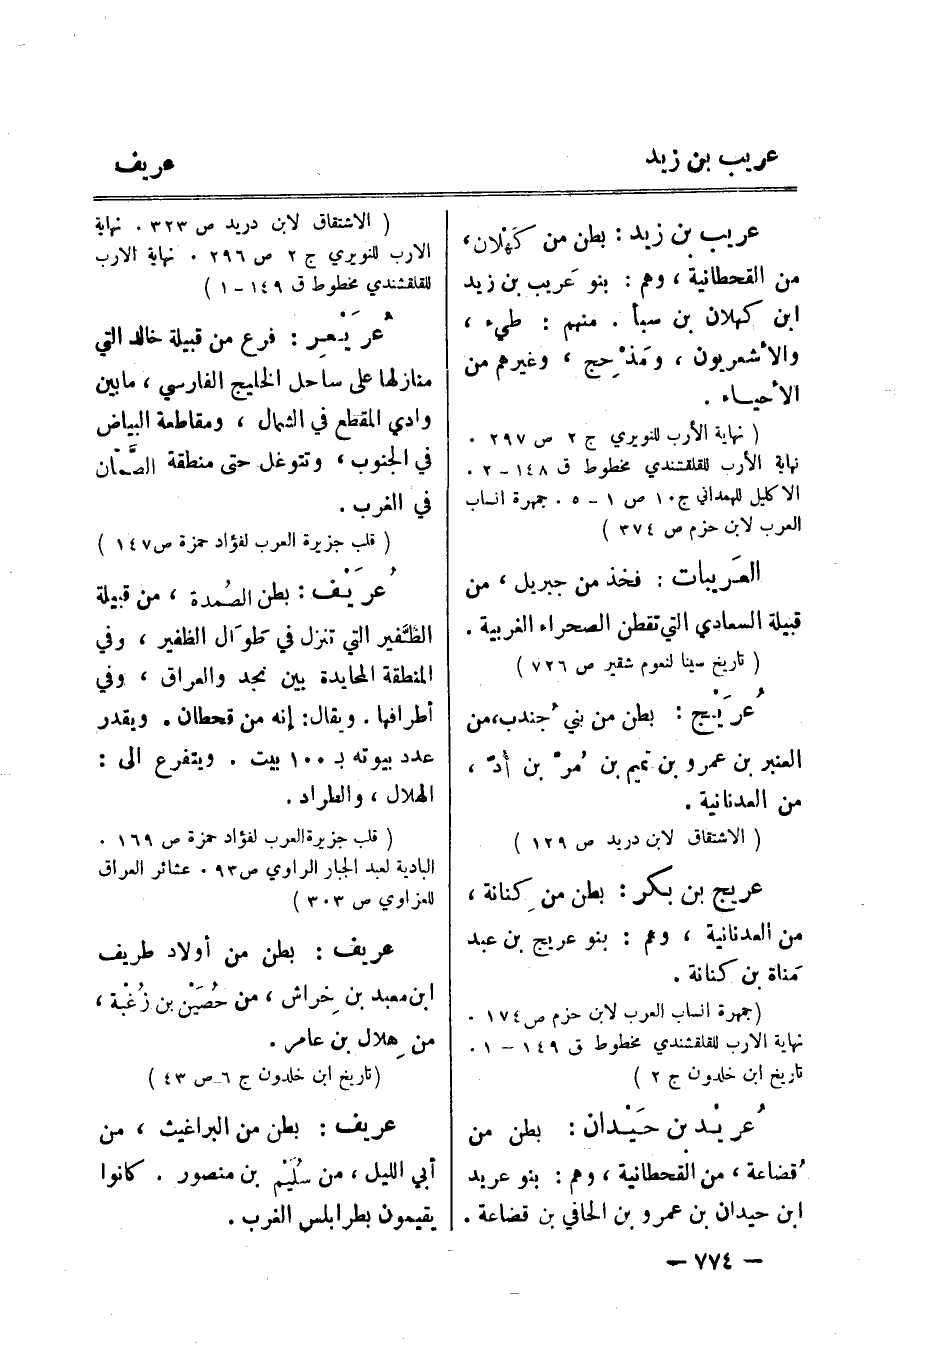 عريب بن زيد
عريف
عريب بن زيد : بطن من كَهْلان،
من القحطانية ، وهم : بنو عَريب بن زيد
ابن كهلان بن سبأ . منهم : طيء ،
والأشعريون ، ومَذْحِج ، وغيرهم من
الأحياء .
( نهاية الأرب للنويري ج ٢ ص ٢٩٧ .
نهاية الأرب للقلقشندي مخطوط ق ١٤٨ - ٢ .
الاكليل للهمداني ج١٠ ص ١ - ٥ . جمهرة انساب
العرب لابن حزم ص ٣٧٤ )
العَريبات : فخذ من جبريل ، من
قبيلة السعادي التي تقطن الصحراء الغربية .
( تاريخ سينا لنعوم شقير ص ٧٢٦ )
عُرَيْج : بطن من بني جُندب، من
العنبر بن عمرو بن تميم بن مُرّ بن أدّ ،
من العدنانية .
( الاشتقاق لابن دريد ص ١٢٩ )
عريج بن بكر : بطن من كِنانة ،
من العدنانية ، وهم : بنو عريج بن عبد
مَناة بن كنانة .
(جمهرة انساب العرب لابن حزم ص١٧٤ .
نهاية الارب للقلقشندي مخطوط ق ١٤٩ - ١ .
تاريخ ابن خلدون ج ٢ )
عُرَيْد بن حَيْدان : بطن من
قُضاعة ، من القحطانية ، وهم : بنو عريد
ابن حيدان بن عمرو بن الحافي بن قضاعة .
( الاشتقاق لابن دريد ص ٣٢٣ . نهاية
الارب للنويري ج ٢ ص ٢٩٦ . نهاية الارب
للقلقشندي مخطوط ق ١٤٩ - ١ )
عُرَيْعِر : فرع من قبيلة خالد التي
منازلها على ساحل الخليج الفارسي ، مابين
وادي المقطع في الشمال ، ومقاطعة البياض
في الجنوب ، وتتوغل حتى منطقة الصَّمَّان
في الغرب .
( قلب جزيرة العرب لفؤاد حمزة ص١٤٧ )
عُرَيْف : بطن الصُمدة ، من قبيلة
الظَّفير التي تنزل في طوَال الظفير ، وفي
المنطقة المحايدة بين نجد والعراق ، وفي
أطرافها . ويقال: إنه من قحطان . ويقدر
عدد بيوته بـ ١٠٠ بيت . ويتفرع الى :
الهلال ، والطراد .
( قلب جزيرة العرب لفؤاد حمزة ص ١٦٩ .
البادية لعبد الجبار الراوي ص٩٣ . عشائر العراق
للعزاوي ص ٣٠٣ )
عريف : بطن من أولاد طريف
ابن معبد بن خِراش ، من حُصَيْن بن زُغْبة ،
من هِلال بن عامر .
(تاريخ ابن خلدون ج ٦ ص ٤٣ )
عريف : بطن من البراغيث ، من
أبي الليل ، من سُلَيْم بن منصور . كانوا
يقيمون بطرابلس الغرب .
— ٧٧٤ —